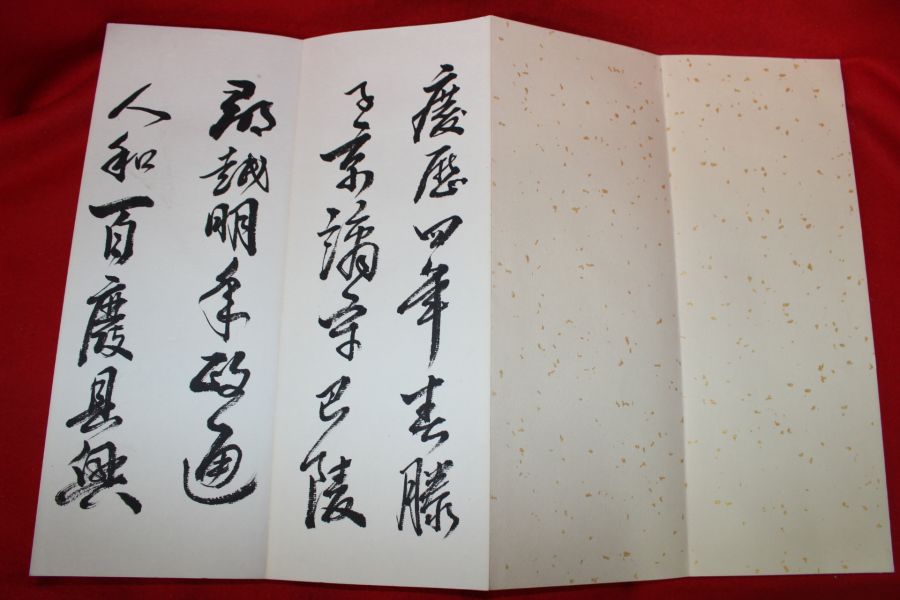 慶歷四年春滕
子京謫守巴陵
郡越明年政通
人和百廢具興